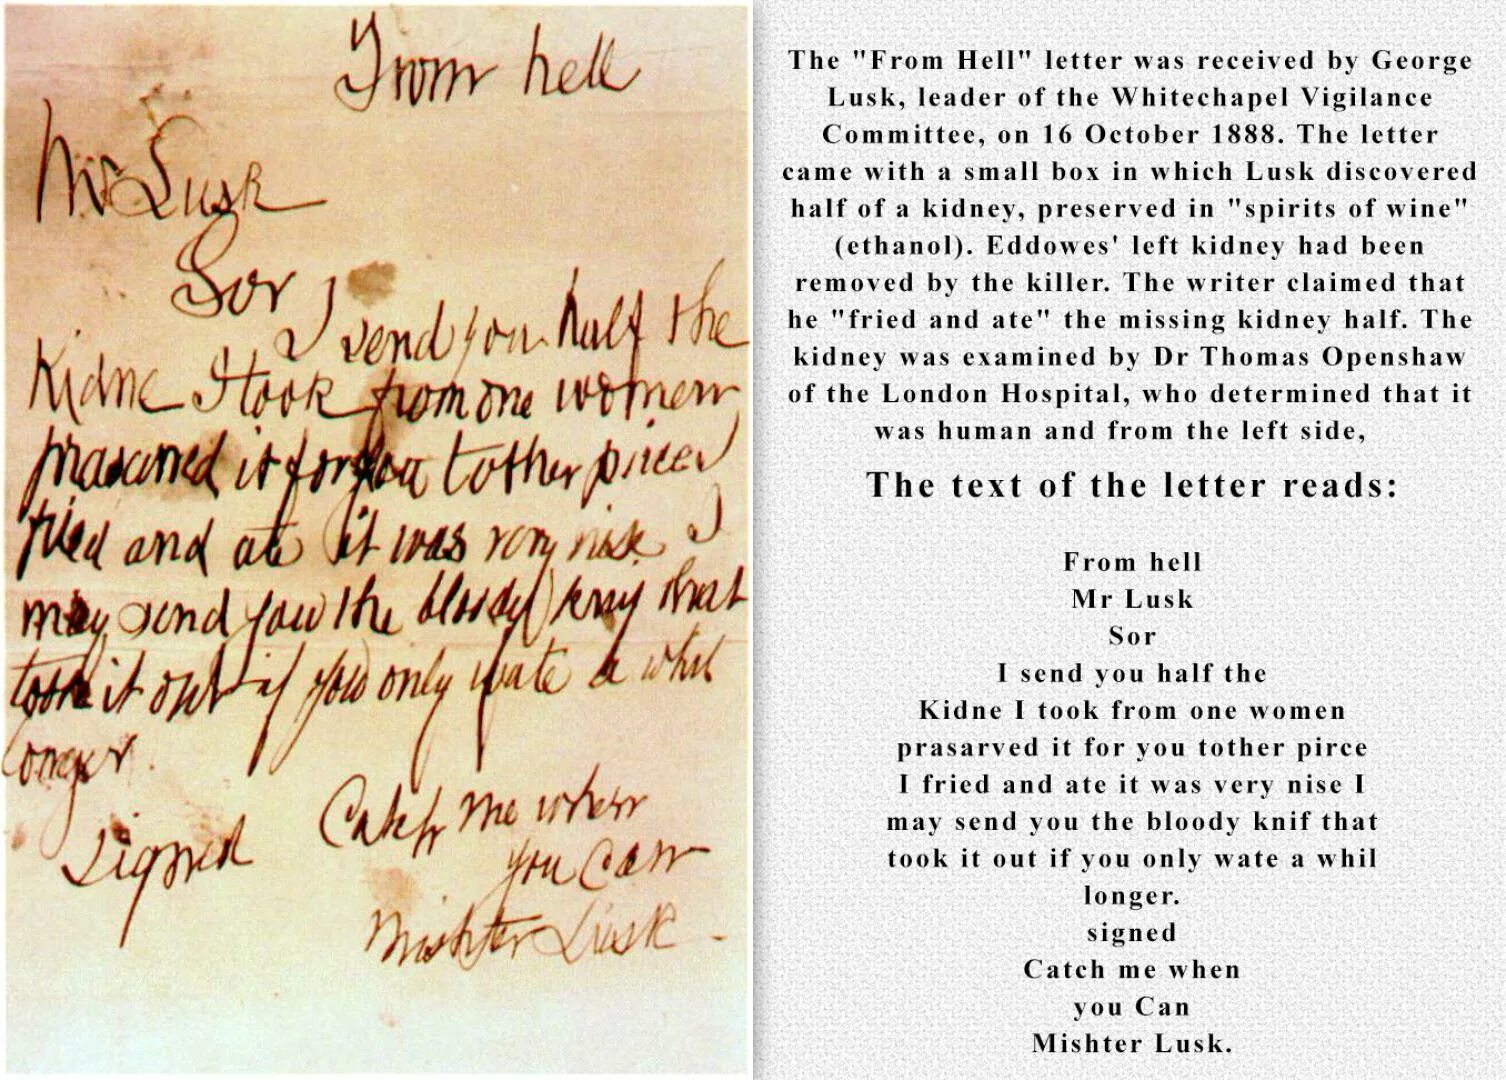 From hell
Mr Lusk
Sor
I send you half the
Kidne I took from one women
prasarved it for you tother piece I
fried and ate it was very nise I
may send you the bloody knif that
took it out if you only wate a whil
longer.
Signed
Catch me when
you Can
Mishter Lusk
The "From Hell" letter was received by George
Lusk, leader of the Whitechapel Vigilance
Committee, on 16 October 1888. The letter
came with a small box in which Lusk discovered
half of a kidney, preserved in "spirits of wine"
(ethanol). Eddowes' left kidney had been
removed by the killer. The writer claimed that
he "fried and ate" the missing kidney half. The
kidney was examined by Dr Thomas Openshaw
of the London Hospital, who determined that it
was human and from the left side,
The text of the letter reads:
From hell
Mr Lusk
Sor
I send you half the
Kidne I took from one women
prasarved it for you tother pirce
I fried and ate it was very nise I
may send you the bloody knif that
took it out if you only wate a whil
longer.
signed
Catch me when
you Can
Mishter Lusk.